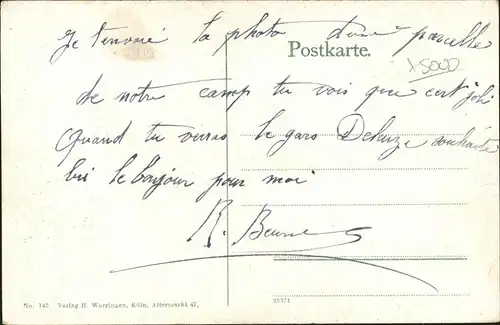 Je t'envoie la photo d'une parcelle
Postkarte.
15000
de notre camp tu vois que c'est joli
Quand tu verras le gars Deleuze souhaite
lui le bonjour pour moi
R.
No. 145 Verlag H. Worringen, Köln, Altermarkt 47.
25371